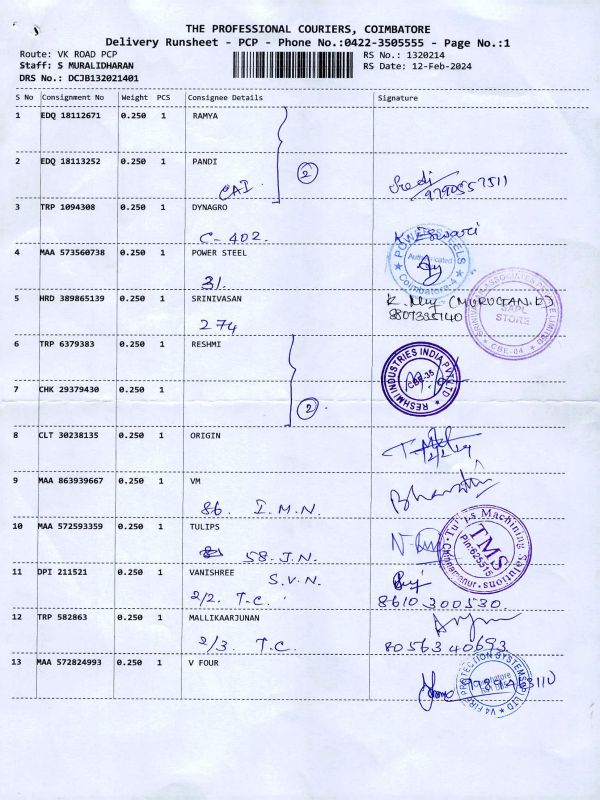 THE PROFESSIONAL COURIERS, COIMBATORE
Delivery Runsheet - PCP - Phone No.:0422-3505555 - Page No.:1
Route: VK ROAD PCP
RS No.: 1320214
Staff: S MURALIDHARAN
RS Date: 12-Feb-2024
DRS No.: DCJB132021401
S No Consignment No Weight PCS Consignee Details Signature
1 EDQ 18112671 0.250 1 RAMYA
2 EDQ 18113252 0.250 1 PANDI
2
CAI
9790557511
3 TRP 1094308 0.250 1 DYNAGRO
C-402.
4 MAA 573560738 0.250 1 POWER STEEL
31.
POWER STEELS
Coimbatore-4
5 HRD 389865139 0.250 1 SRINIVASAN
274
(MURUGAN.K)
SAPL
STORE
CBE-04
6 TRP 6379383 0.250 1 RESHMI
RESHMI INDUSTRIES INDIA PVT LTD
CBE-35
7 CHK 29379430 0.250 1
2
8 CLT 30238135 0.250 1 ORIGIN
9 MAA 863939667 0.250 1 VM
86. I.M.N.
Bharathi
10 MAA 572593359 0.250 1 TULIPS
58-J.N.
Tulips Machining Solutions
TMS
11 DPI 211521 0.250 1 VANISHREE
S.V.N.
2/2. T.C.
8610300530.
12 TRP 582863 0.250 1 MALLIKAARJUNAN
2/3. T.C.
8056340693
13 MAA 572824993 0.250 1 V FOUR